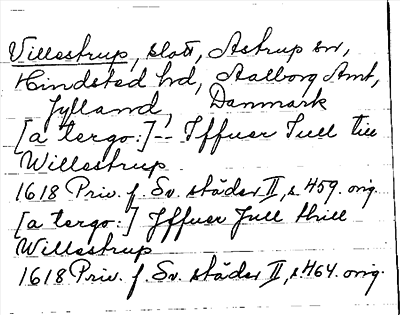 Villestrup, slott, Astrup sn,
Hindsted hd, Aalborg Amt,
Jylland, Danmark
[a tergo:] -- Iffuer Iull till
Willestrup.
1618 Priv. f. Sv. städer II, s 459. orig.
[a tergo:] Iffuer Jull thill
Willestrup
1618 Priv. f. Sv. städer II, s 464. orig.